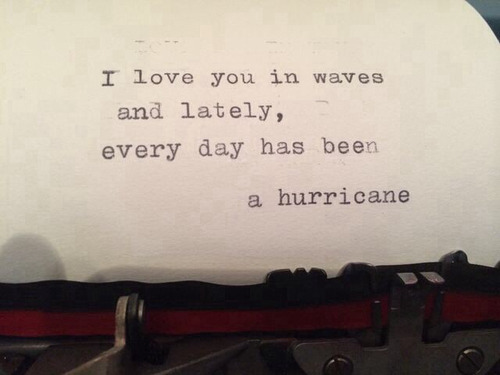 I love you in waves
and lately,
every day has been
a hurricane